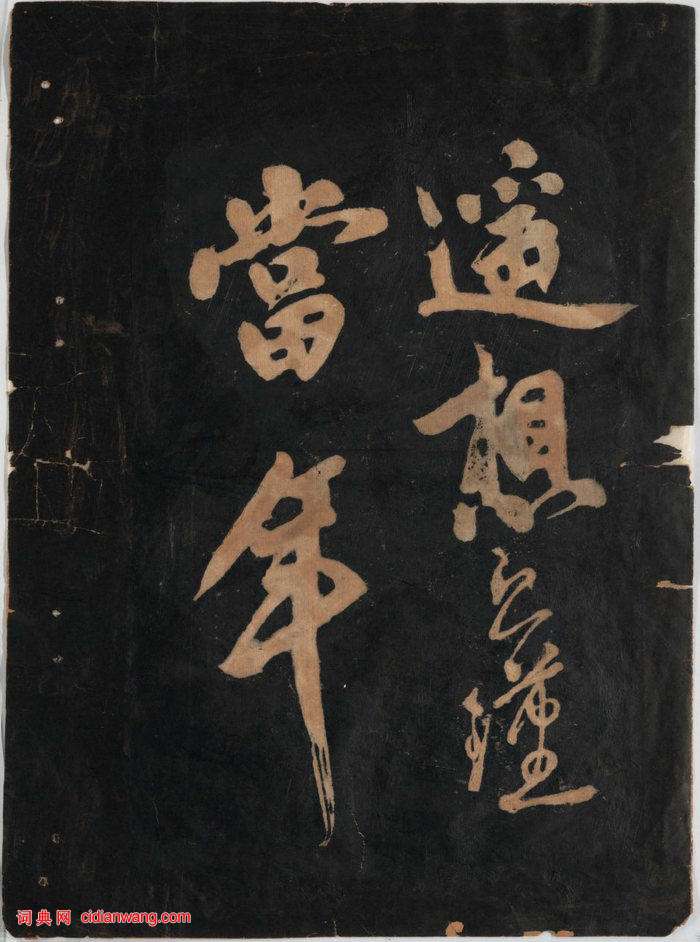 遙想公瑾
當年
词典网 cidianwang.com